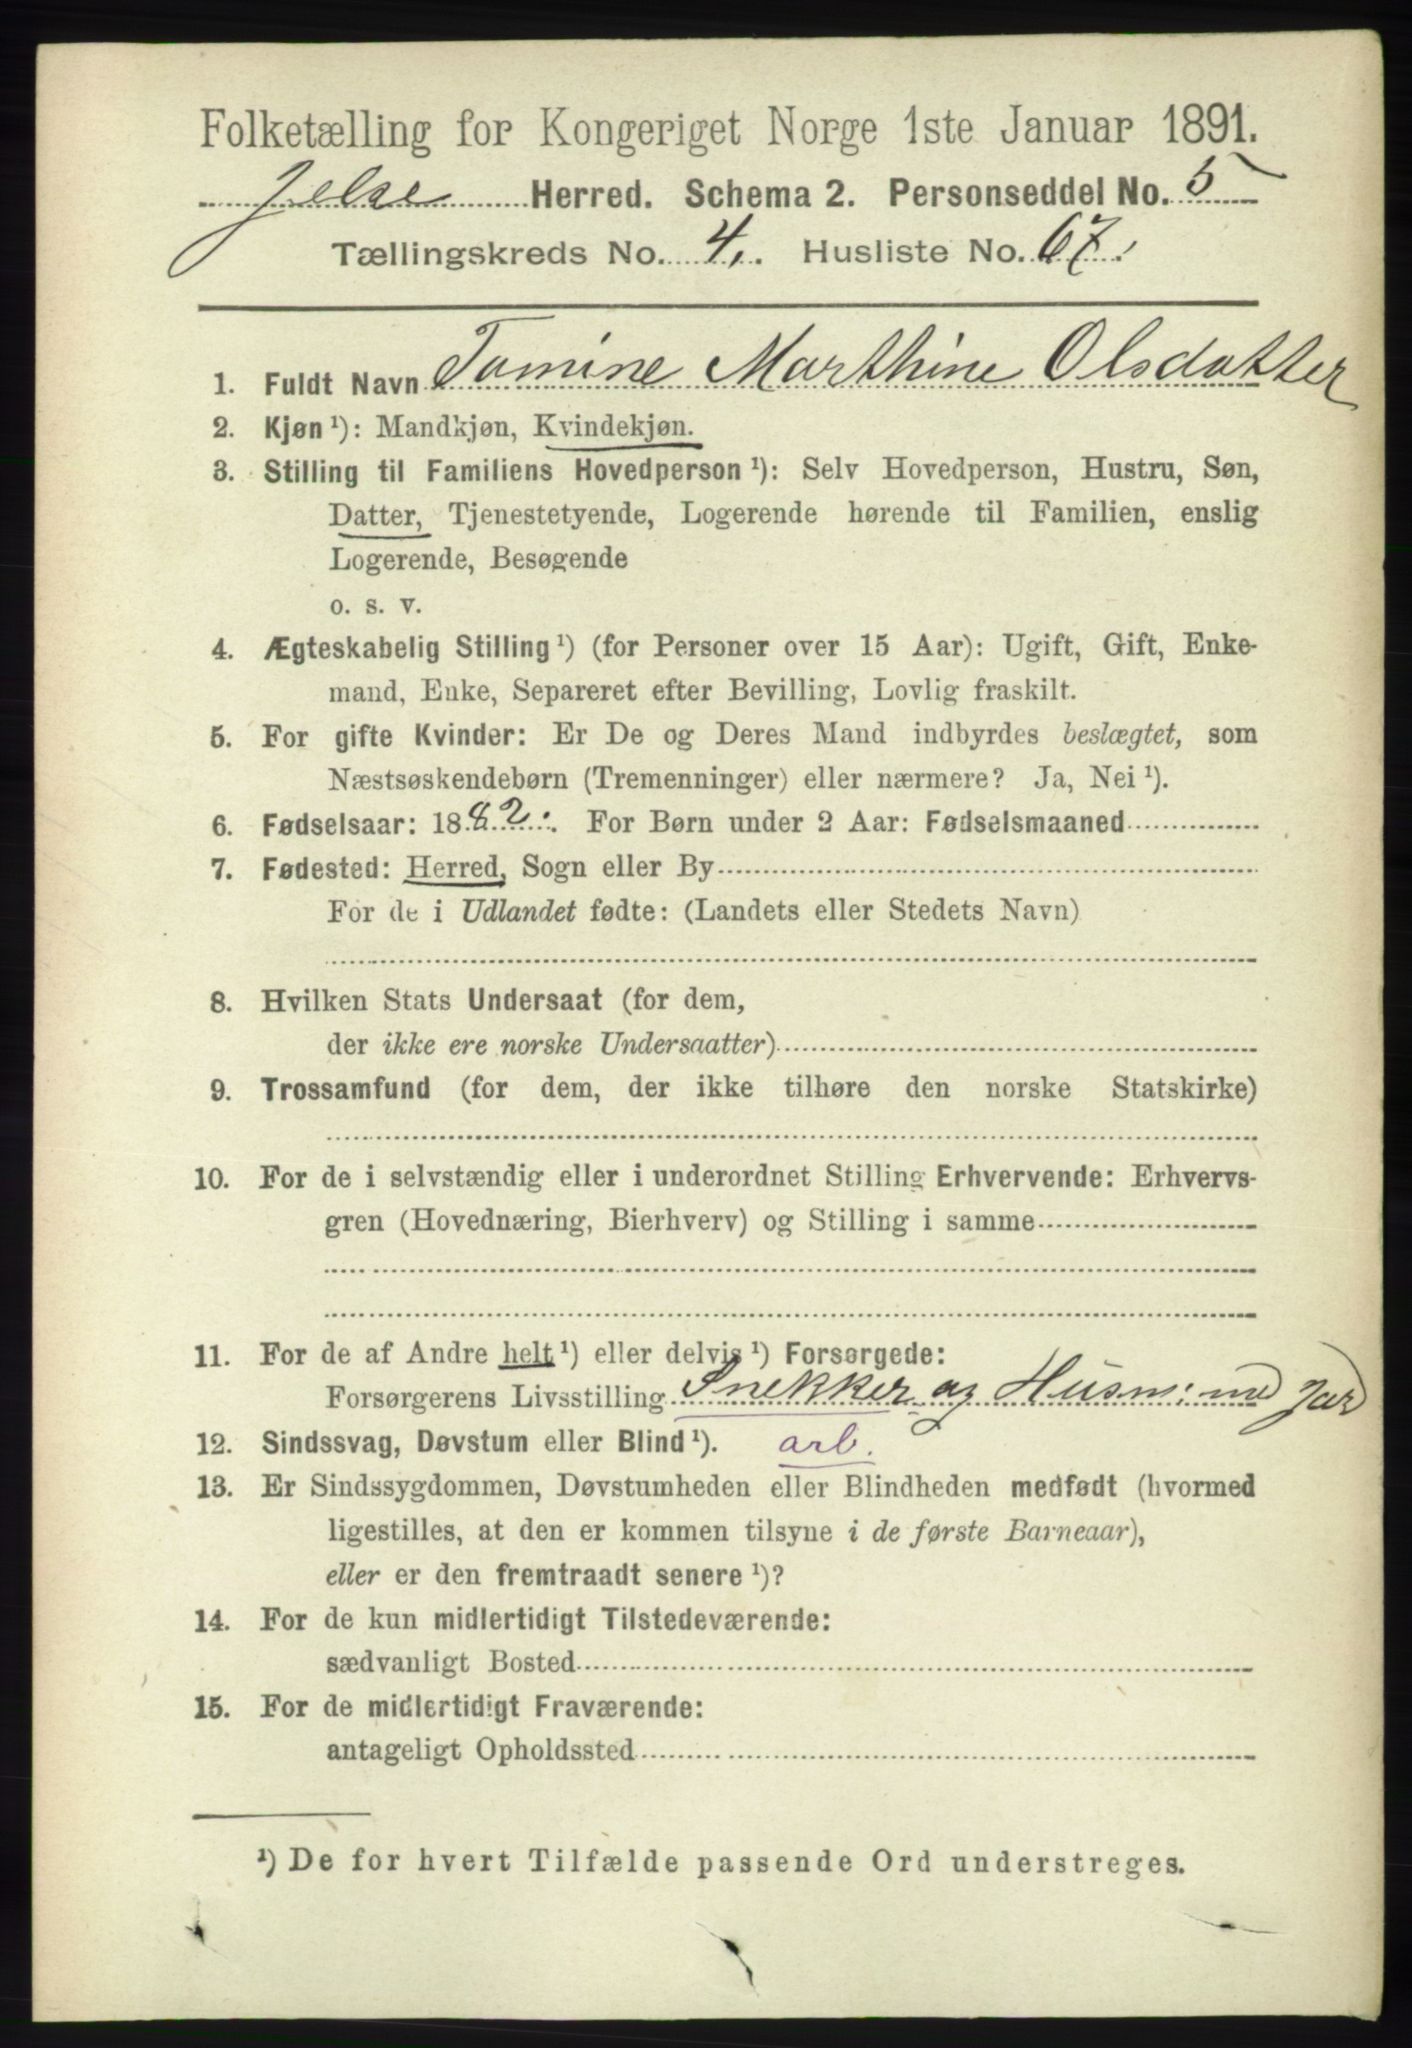 Folketælling for Kongeriget Norge 1ste Januar 1891.
Jelse Herred. Schema 2. Personseddel No. 5
Tællingskreds No. 4. Husliste No. 67.
1. Fuldt Navn Tomine Marthine Olsdatter
2. Kjøn ¹): Mandkjøn, Kvindekjøn.
3. Stilling til Familiens Hovedperson ¹): Selv Hovedperson, Hustru, Søn,
Datter, Tjenestetyende, Logerende hørende til Familien, enslig
Logerende, Besøgende
o. s. v.
4. Ægteskabelig Stilling ¹) (for Personer over 15 Aar): Ugift, Gift, Enke-
mand, Enke, Separeret efter Bevilling, Lovlig fraskilt.
5. For gifte Kvinder: Er De og Deres Mand indbyrdes beslægtet, som
Næstsøskendebørn (Tremenninger) eller nærmere? Ja, Nei ¹).
6. Fødselsaar: 1882. For Børn under 2 Aar: Fødselsmaaned
7. Fødested: Herred, Sogn eller By
For de i Udlandet fødte: (Landets eller Stedets Navn)
8. Hvilken Stats Undersaat (for dem,
der ikke ere norske Undersaatter)
9. Trossamfund (for dem, der ikke tilhøre den norske Statskirke)
10. For de i selvstændig eller i underordnet Stilling Erhvervende: Erhvervs-
gren (Hovednæring, Bierhverv) og Stilling i samme
11. For de af Andre helt ¹) eller delvis ¹) Forsørgede:
Forsørgerens Livsstilling Snekker og Husm: med Jord
12. Sindssvag, Døvstum eller Blind ¹). arb.
13. Er Sindssygdommen, Døvstumheden eller Blindheden medfødt (hvormed
ligestilles, at den er kommen tilsyne i de første Barneaar),
eller er den fremtraadt senere ¹)?
14. For de kun midlertidigt Tilstedeværende:
sædvanligt Bosted
15. For de midlertidigt Fraværende:
antageligt Opholdssted
¹) De for hvert Tilfælde passende Ord understreges.